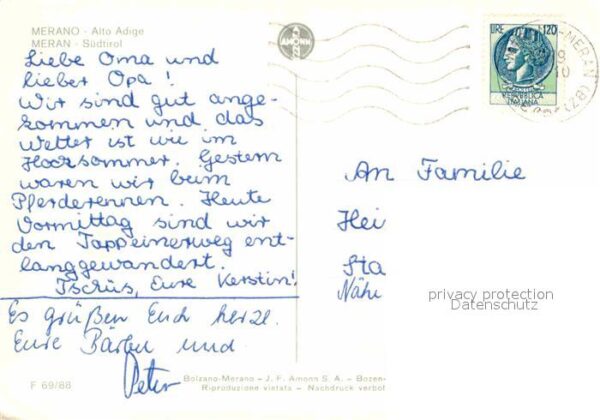 MERANO - Alto Adige
MERAN - Südtirol
Liebe Oma und
lieber Opa!
Wir sind gut ange-
kommen und das
Wetter ist wie im
Hochsommer. Gestern
waren wir beim
Pferderennen. Heute
Vormittag sind wir
den Tappeinerweg ent-
langgewandert.
Tschüs, Eure Kerstin!
Es grüßen Euch herzl.
Eure Bärbel und
Peter
F 69/88
AMONN
LIRE 120
REPUBBLICA
ITALIANA
MERAN (BZ)
An Familie
Hei
Sta
Nähe
privacy protection
Datenschutz
Bolzano-Merano - J. F. Amonn S. A. - Bozen-
Riproduzione vietata - Nachdruck verbot